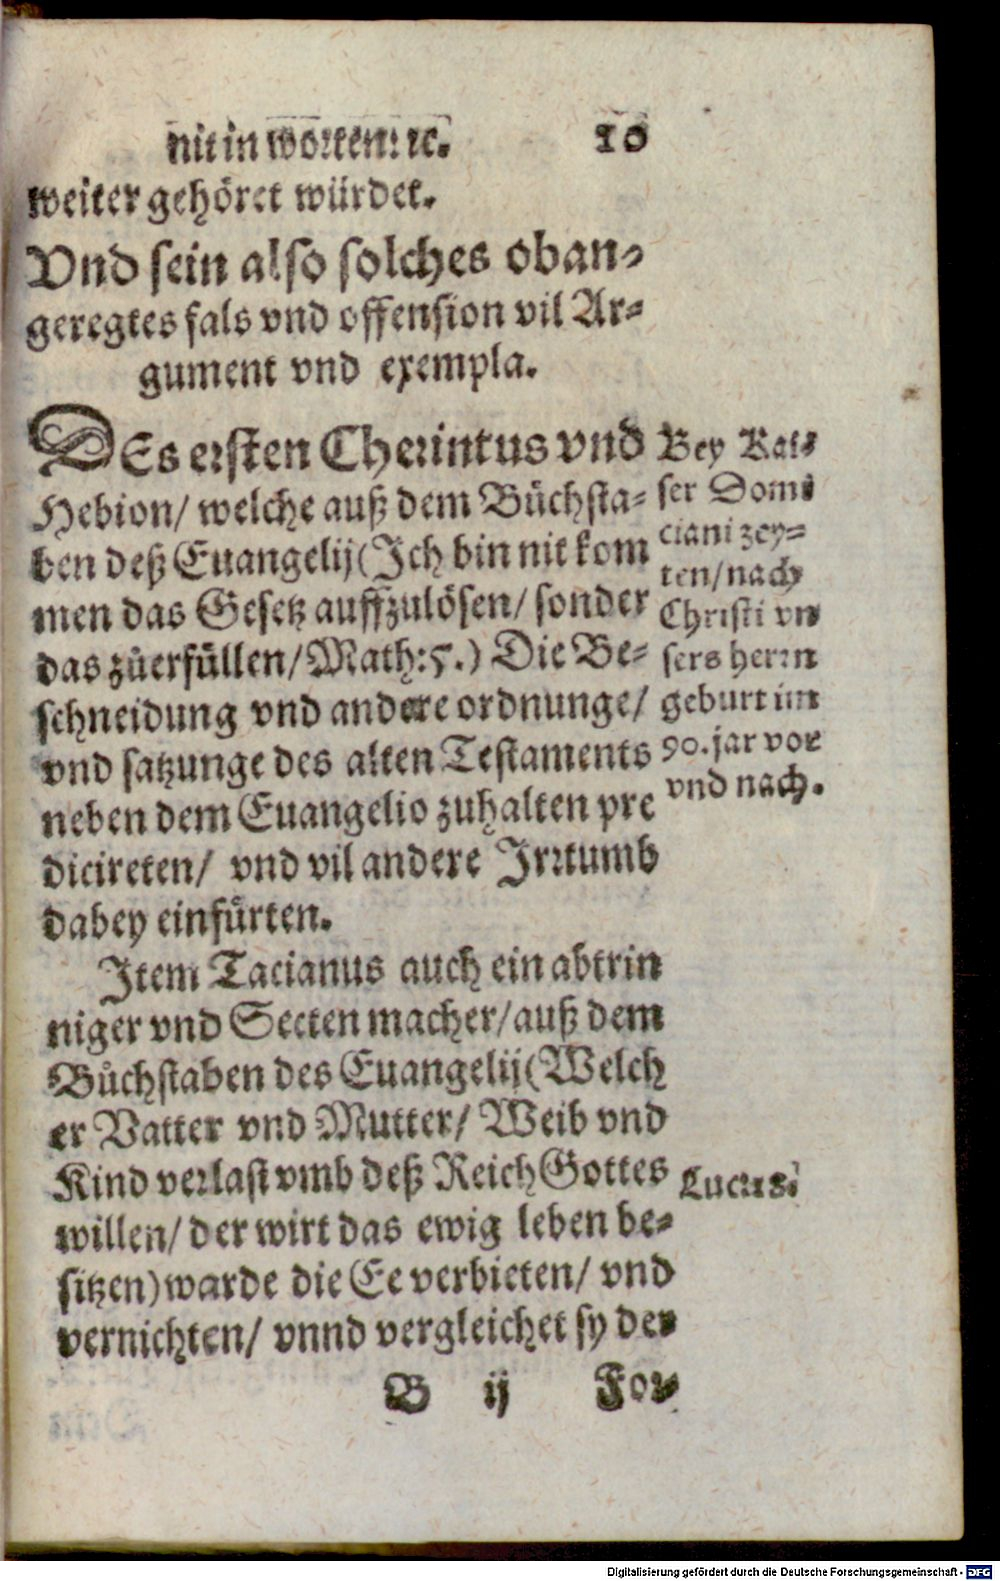 nit in worten: ꝛc. 10
weiter gehöret würdet.
Vnd sein also solches oban-
geregtes fals vnd offension vil Ar-
gument vnd exempla.
DEs ersten Cherintus vnd
Hebion/ welche auß dem Bůchsta-
ben deß Euangelij (Ich bin nit kom
men das Gesetz auffzulösen/ sonder
das zůerfüllen/ Math: 5.) Die Be-
schneidung vnd andere ordnunge/
vnd satzunge des alten Testaments
neben dem Euangelio zuhalten pre
dicireten/ vnd vil andere Irrtumb
dabey einfürten.
Bey Kai-
ser Domi
ciani zey-
ten/ nach
Christi vn
sers herrn
geburt im
90. jar vor
vnd nach.
Item Tacianus auch ein abtrin
niger vnd Secten macher/ auß dem
Bůchstaben des Euangelij (Welch
er Vatter vnd Mutter/ Weib vnd
Kind verlast vmb deß Reich Gottes
willen/ der wirt das ewig leben be-
sitzen) warde die Ee verbieten/ vnd
vernichten/ vnnd vergleichet sy der
Luc: 18.
B ij For-
Digitalisierung gefördert durch die Deutsche Forschungsgemeinschaft - DFG